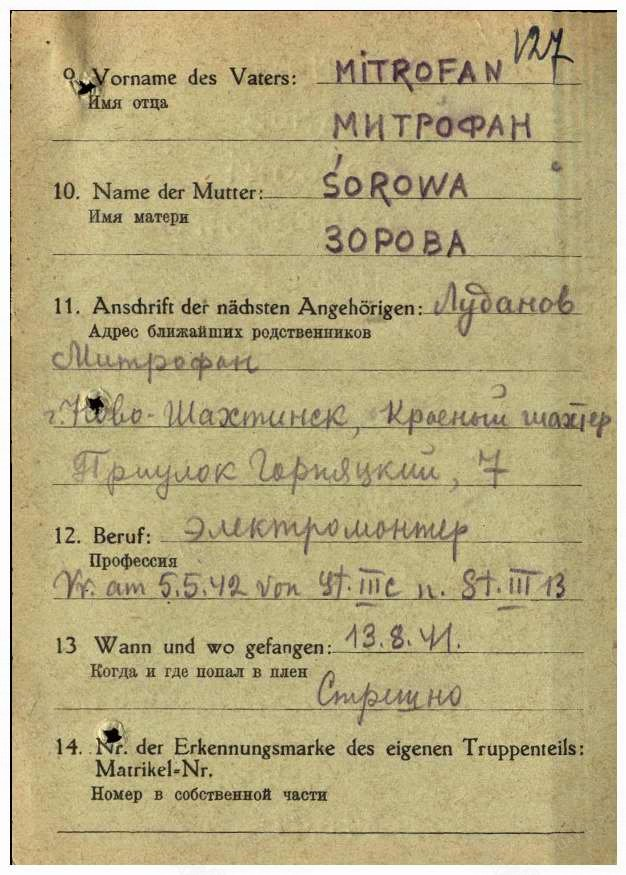 127
9. Vorname des Vaters: MITROFAN
Имя отца
МИТРОФАН
10. Name der Mutter: ŚOROWA
Имя матери
ЗОРОВА
11. Anschrift der nächsten Angehörigen: Луданов
Адрес ближайших родственников
Митрофан
г. Ново-Шахтинск, Красный шахтер
Приулок Горняцкий, 7
12. Beruf: Электромонтер
Профессия
Kr. am 5.5.42 von St. III C n. St. III B
13 Wann und wo gefangen: 13.8.41.
Когда и где попал в плен
Стрешно
14. Nr. der Erkennungsmarke des eigenen Truppenteils:
Matrikel=Nr.
Номер в собственной части